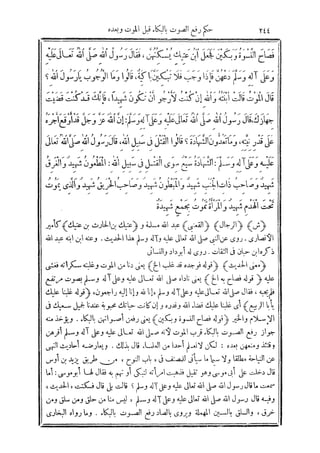 ٢٤٤ حكم رفع الصوت بالبكاء قبل الموت وبعده
فَصَاحَ النِّسْوَةُ وَبَكَيْنَ فَجَعَلَ ابْنُ عَتِيكٍ يُسَكِّتُهُنَّ، فَقَالَ رَسُولُ اللهِ صَلَّى اللهُ تَعَالَى عَلَيْهِ
وَعَلَى آلِهِ وَسَلَّمَ دَعْهُنَّ فَإِذَا وَجَبَ فَلَا تَبْكِيَنَّ بَاكِيَةٌ، قَالُوا وَمَا الْوُجُوبُ يَا رَسُولَ اللهِ؟
قَالَ الْمَوْتُ قَالَتِ ابْنَتُهُ وَاللهِ إِنْ كُنْتُ لَأَرْجُو أَنْ تَكُونَ شَهِيدًا، فَإِنَّكَ قَدْ كُنْتَ قَضَيْتَ
جِهَازَكَ، قَالَ رَسُولُ اللهِ صَلَّى اللهُ تَعَالَى عَلَيْهِ وَعَلَى آلِهِ وَسَلَّمَ: إِنَّ اللهَ عَزَّ وَجَلَّ قَدْ أَوْقَعَ أَجْرَهُ
عَلَى قَدْرِ نِيَّتِهِ، وَمَا تَعُدُّونَ الشَّهَادَةَ؟ قَالُوا الْقَتْلُ فِي سَبِيلِ اللهِ، قَالَ رَسُولُ اللهِ صَلَّى اللهُ تَعَالَى
عَلَيْهِ وَعَلَى آلِهِ وَسَلَّمَ: الشَّهَادَةُ سَبْعٌ سِوَى الْقَتْلِ فِي سَبِيلِ اللهِ: الْمَطْعُونُ شَهِيدٌ وَالْغَرِقُ
شَهِيدٌ وَصَاحِبُ ذَاتِ الْجَنْبِ شَهِيدٌ وَالْمَبْطُونُ شَهِيدٌ وَصَاحِبُ الْحَرِيقِ شَهِيدٌ وَالَّذِي يَمُوتُ
تَحْتَ الْهَدْمِ شَهِيدٌ وَالْمَرْأَةُ تَمُوتُ بِجُمْعٍ شَهِيدَةٌ
(ش) (الرجال) (القعنبي) عبد الله بن مسلمة و (عتيك بن الحارث بن عتيك) كأمير
الأنصاري. روى عن النبي صلى الله تعالى عليه وآله وسلم هذا الحديث. وعنه ابن ابنه عبد الله
ذكره ابن حبان في الثقات. روى له أبو داود والنسائي
(معنى الحديث) (قوله فوجده قد غلب الخ) يعني دنا من الموت وغلبته سكراته فغشي
عليه (قوله فصاح به الخ) يعني ناداه صلى الله تعالى عليه وعلى آله وسلم بصوت مرتفع
فلم يجبه، فقال صلى الله تعالى عليه وعلى آله وسلم، إنا لله وإنا إليه راجعون، (قوله غلبنا عليك
يا أبا الربيع) أي غلبنا عليك قضاء الله وقدره وإن كانت حياتك محبوبة عندنا لجميل سعيك في
الإسلام والخير (قوله فصاح النسوة وبكين) يعني رفعن أصواتهن بالبكاء. ويؤخذ منه
جواز رفع الصوت بالبكاء قرب الموت لأنه صلى الله تعالى عليه وعلى آله وسلم أقرهن
وقتئذ ومنعهن بعده: لكن لا نعلم أحدا من العلماء. قال بذلك. ويعارضه أحاديث النهي
عن النياحة مطلقا ولا سيما ما سيأتي للمصنف في، باب النوح، من طريق يزيد بن أوس
قال دخلت على أبي موسى وهو ثقيل فذهبت امرأته لتبكي أو تهم به فقال لها أبو موسى: أما
سمعت ما قال رسول الله صلى الله تعالى عليه وعلى آله وسلم؟ قالت بلى قال فسكتت، الحديث،
وفيه قال رسول الله صلى الله تعالى عليه وعلى آله وسلم، ليس منا من حلق ومن سلق ومن
خرق، والسلق بالسين المهملة ويروى بالصاد رفع الصوت بالبكاء. وما رواه البخاري